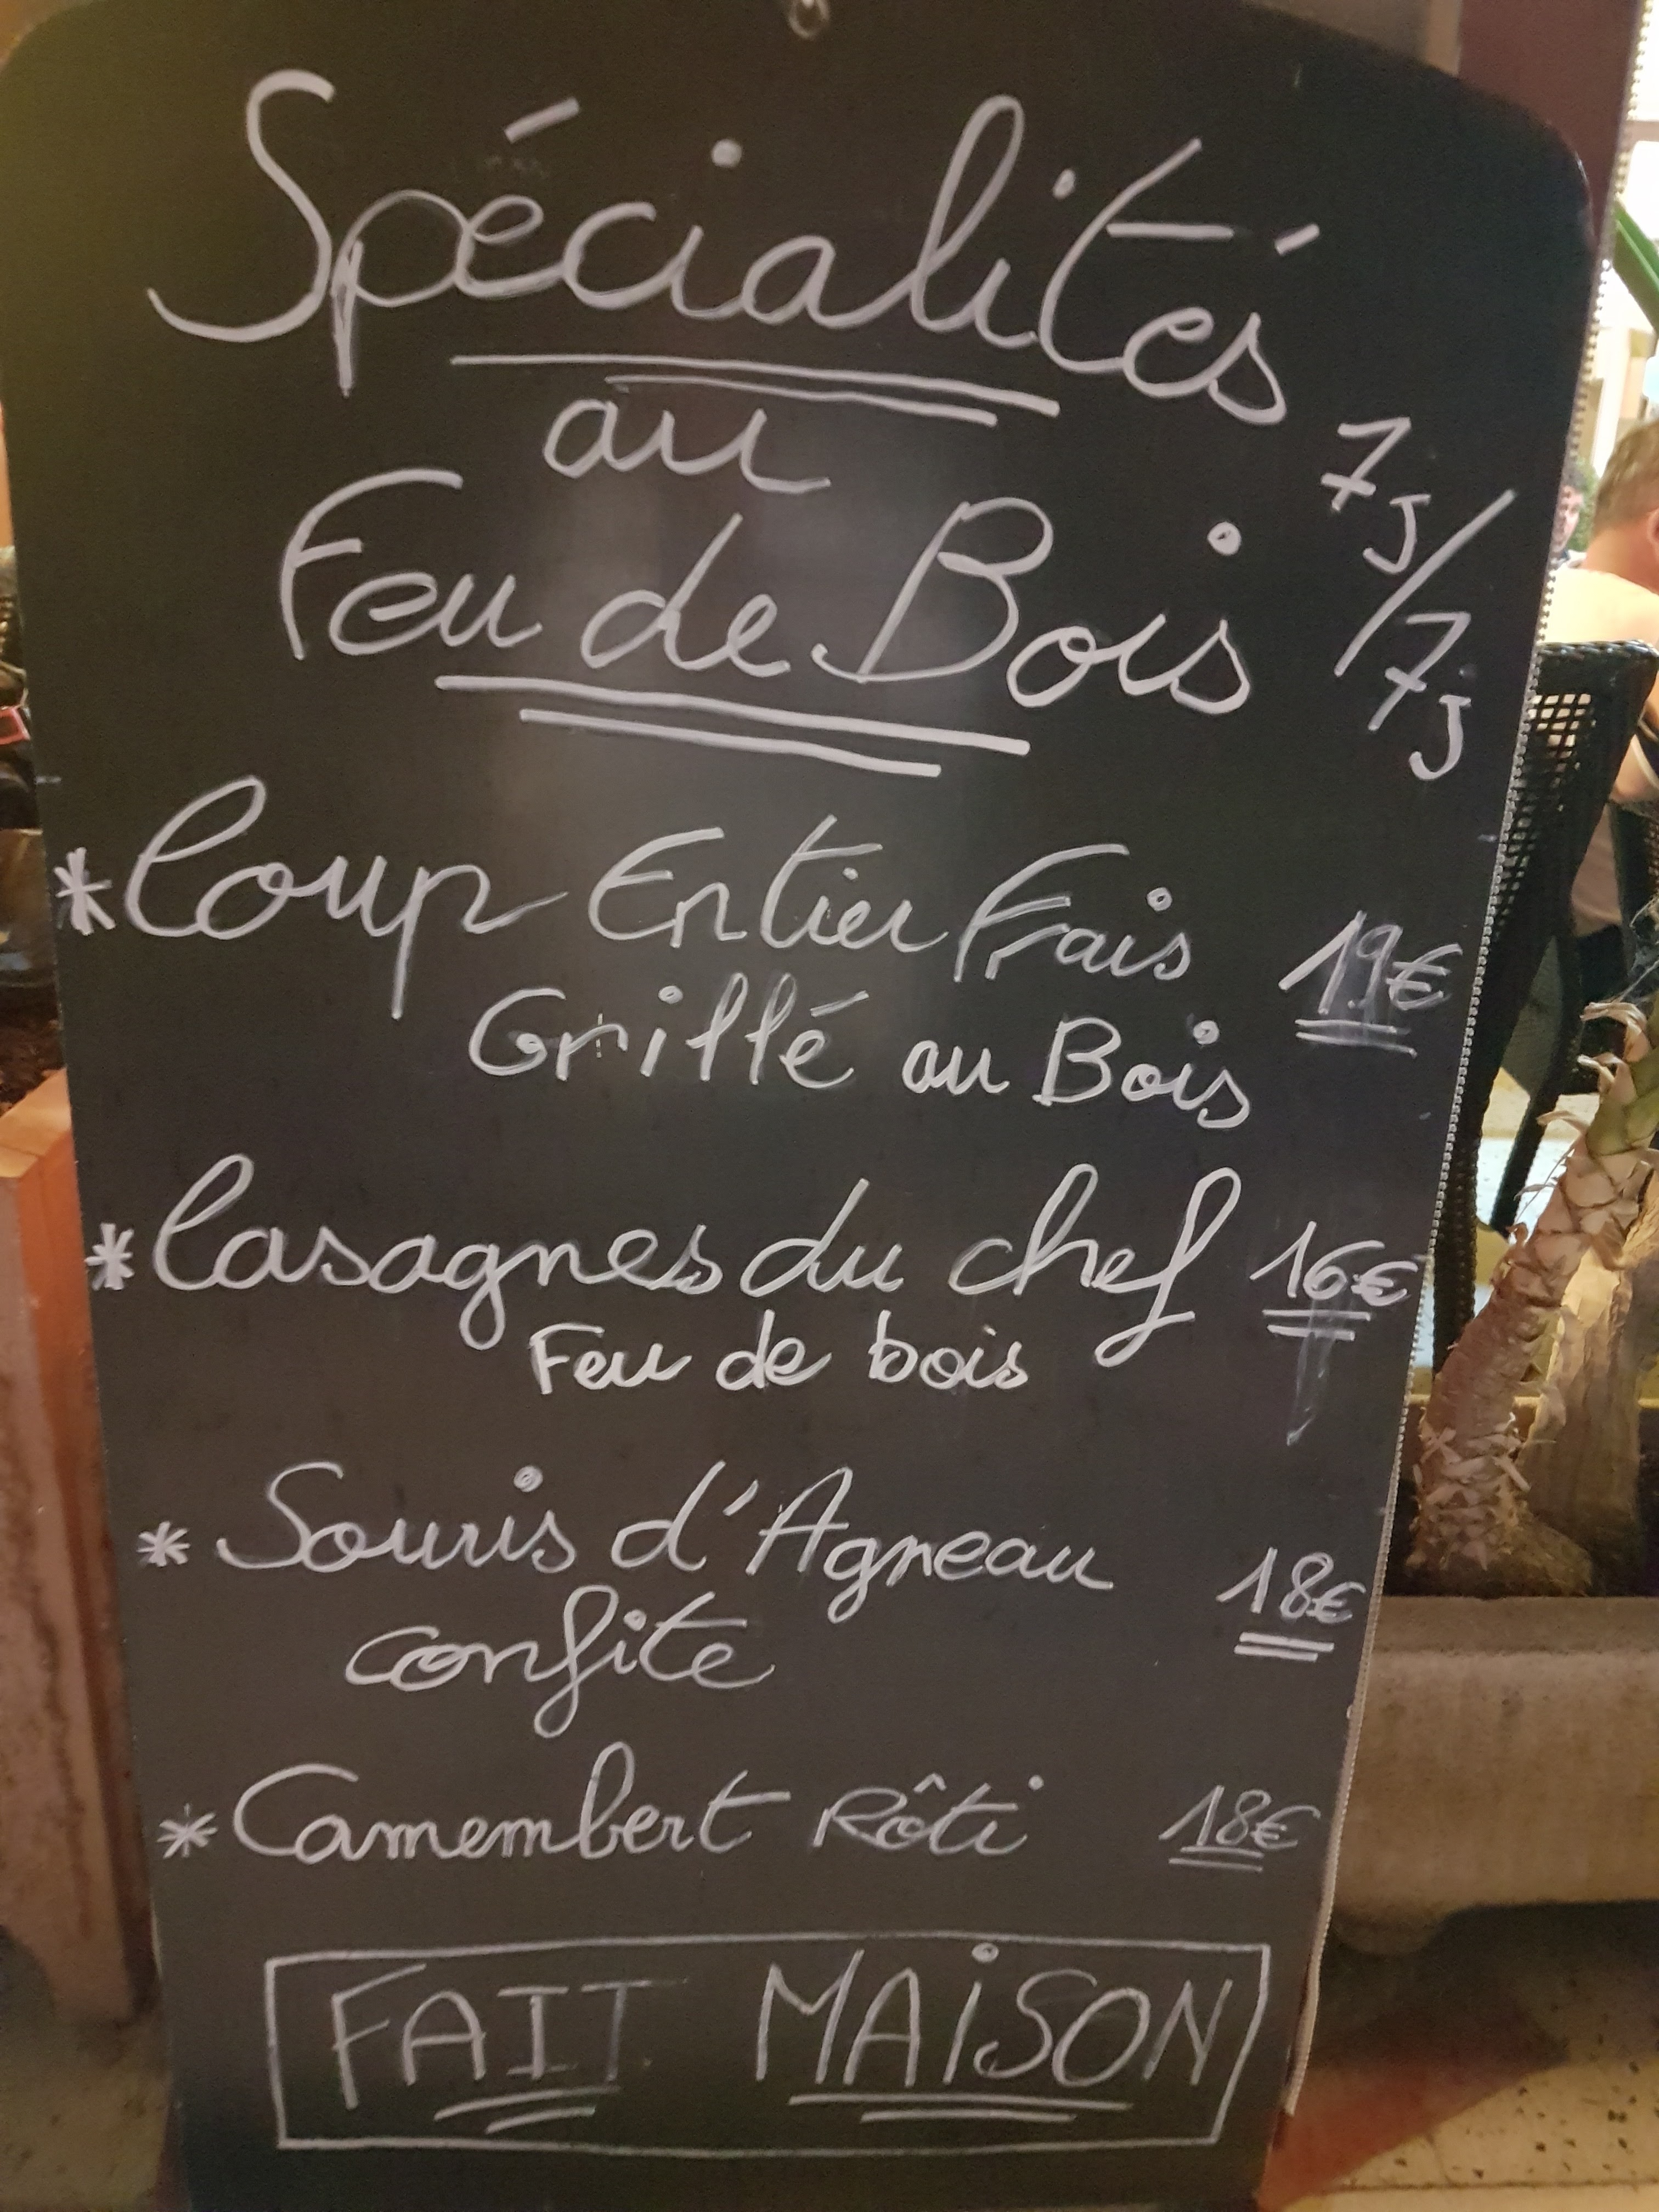 Spécialités
au
Feu de Bois 7j/7j
* Loup Entier Frais 19€
Grillé au Bois
* Lasagnes du chef 16€
Feu de bois
* Souris d'Agneau 18€
confite
* Camembert Rôti 18€
FAIT MAISON